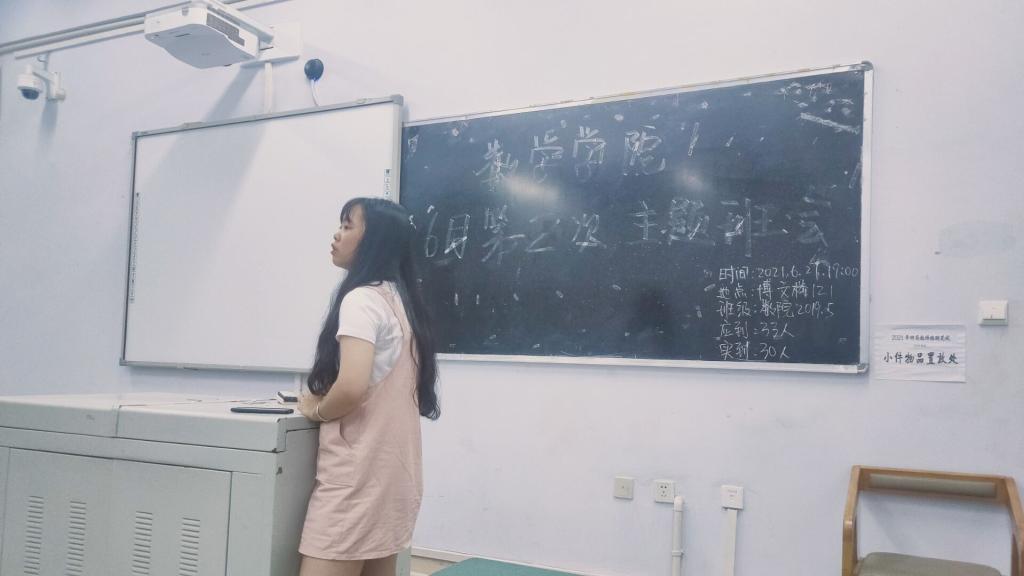 数学学院
6月第二次主题班会
时间:2021.6.27.19:00
地点:博文楼121
班级:数院2019.5
应到:33人
实到:30人
小件物品置放处